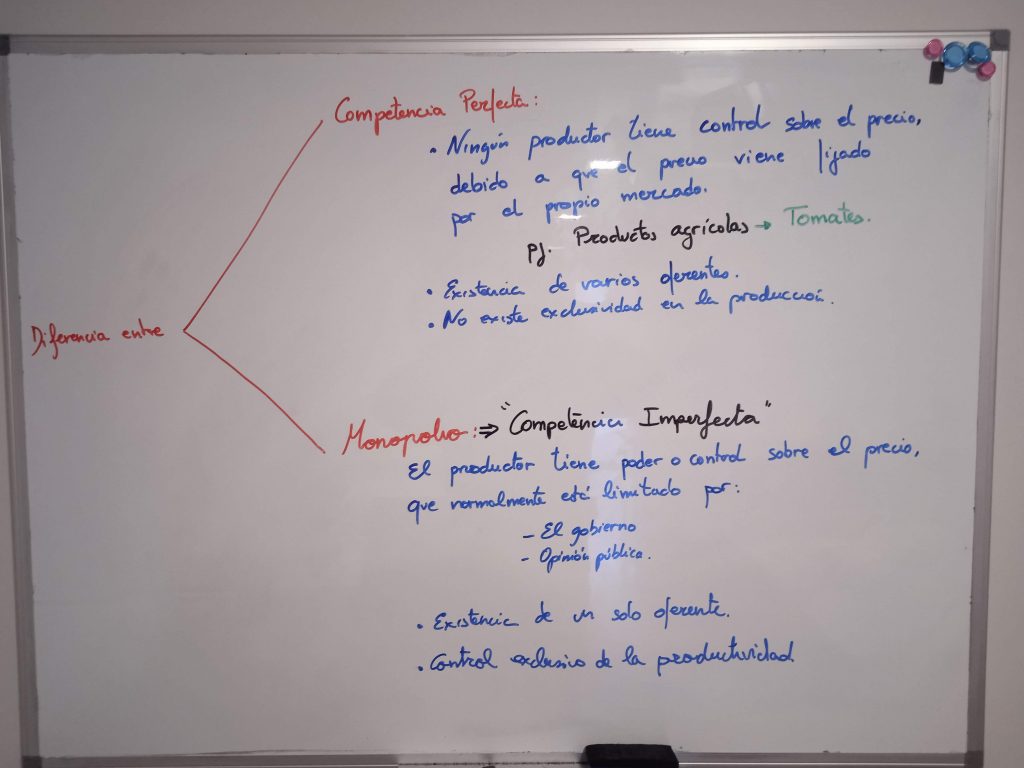 Diferencia entre
Competencia Perfecta:
• Ningún productor tiene control sobre el precio,
debido a que el precio viene fijado
por el propio mercado.
Pj. Productos agrícolas → Tomates.
• Existencia de varios oferentes.
• No existe exclusividad en la producción.
Monopolio: ⇒ "Competencia Imperfecta"
El productor tiene poder o control sobre el precio,
que normalmente está limitado por:
- El gobierno
- Opinión pública.
• Existencia de un solo oferente.
• Control exclusivo de la productividad